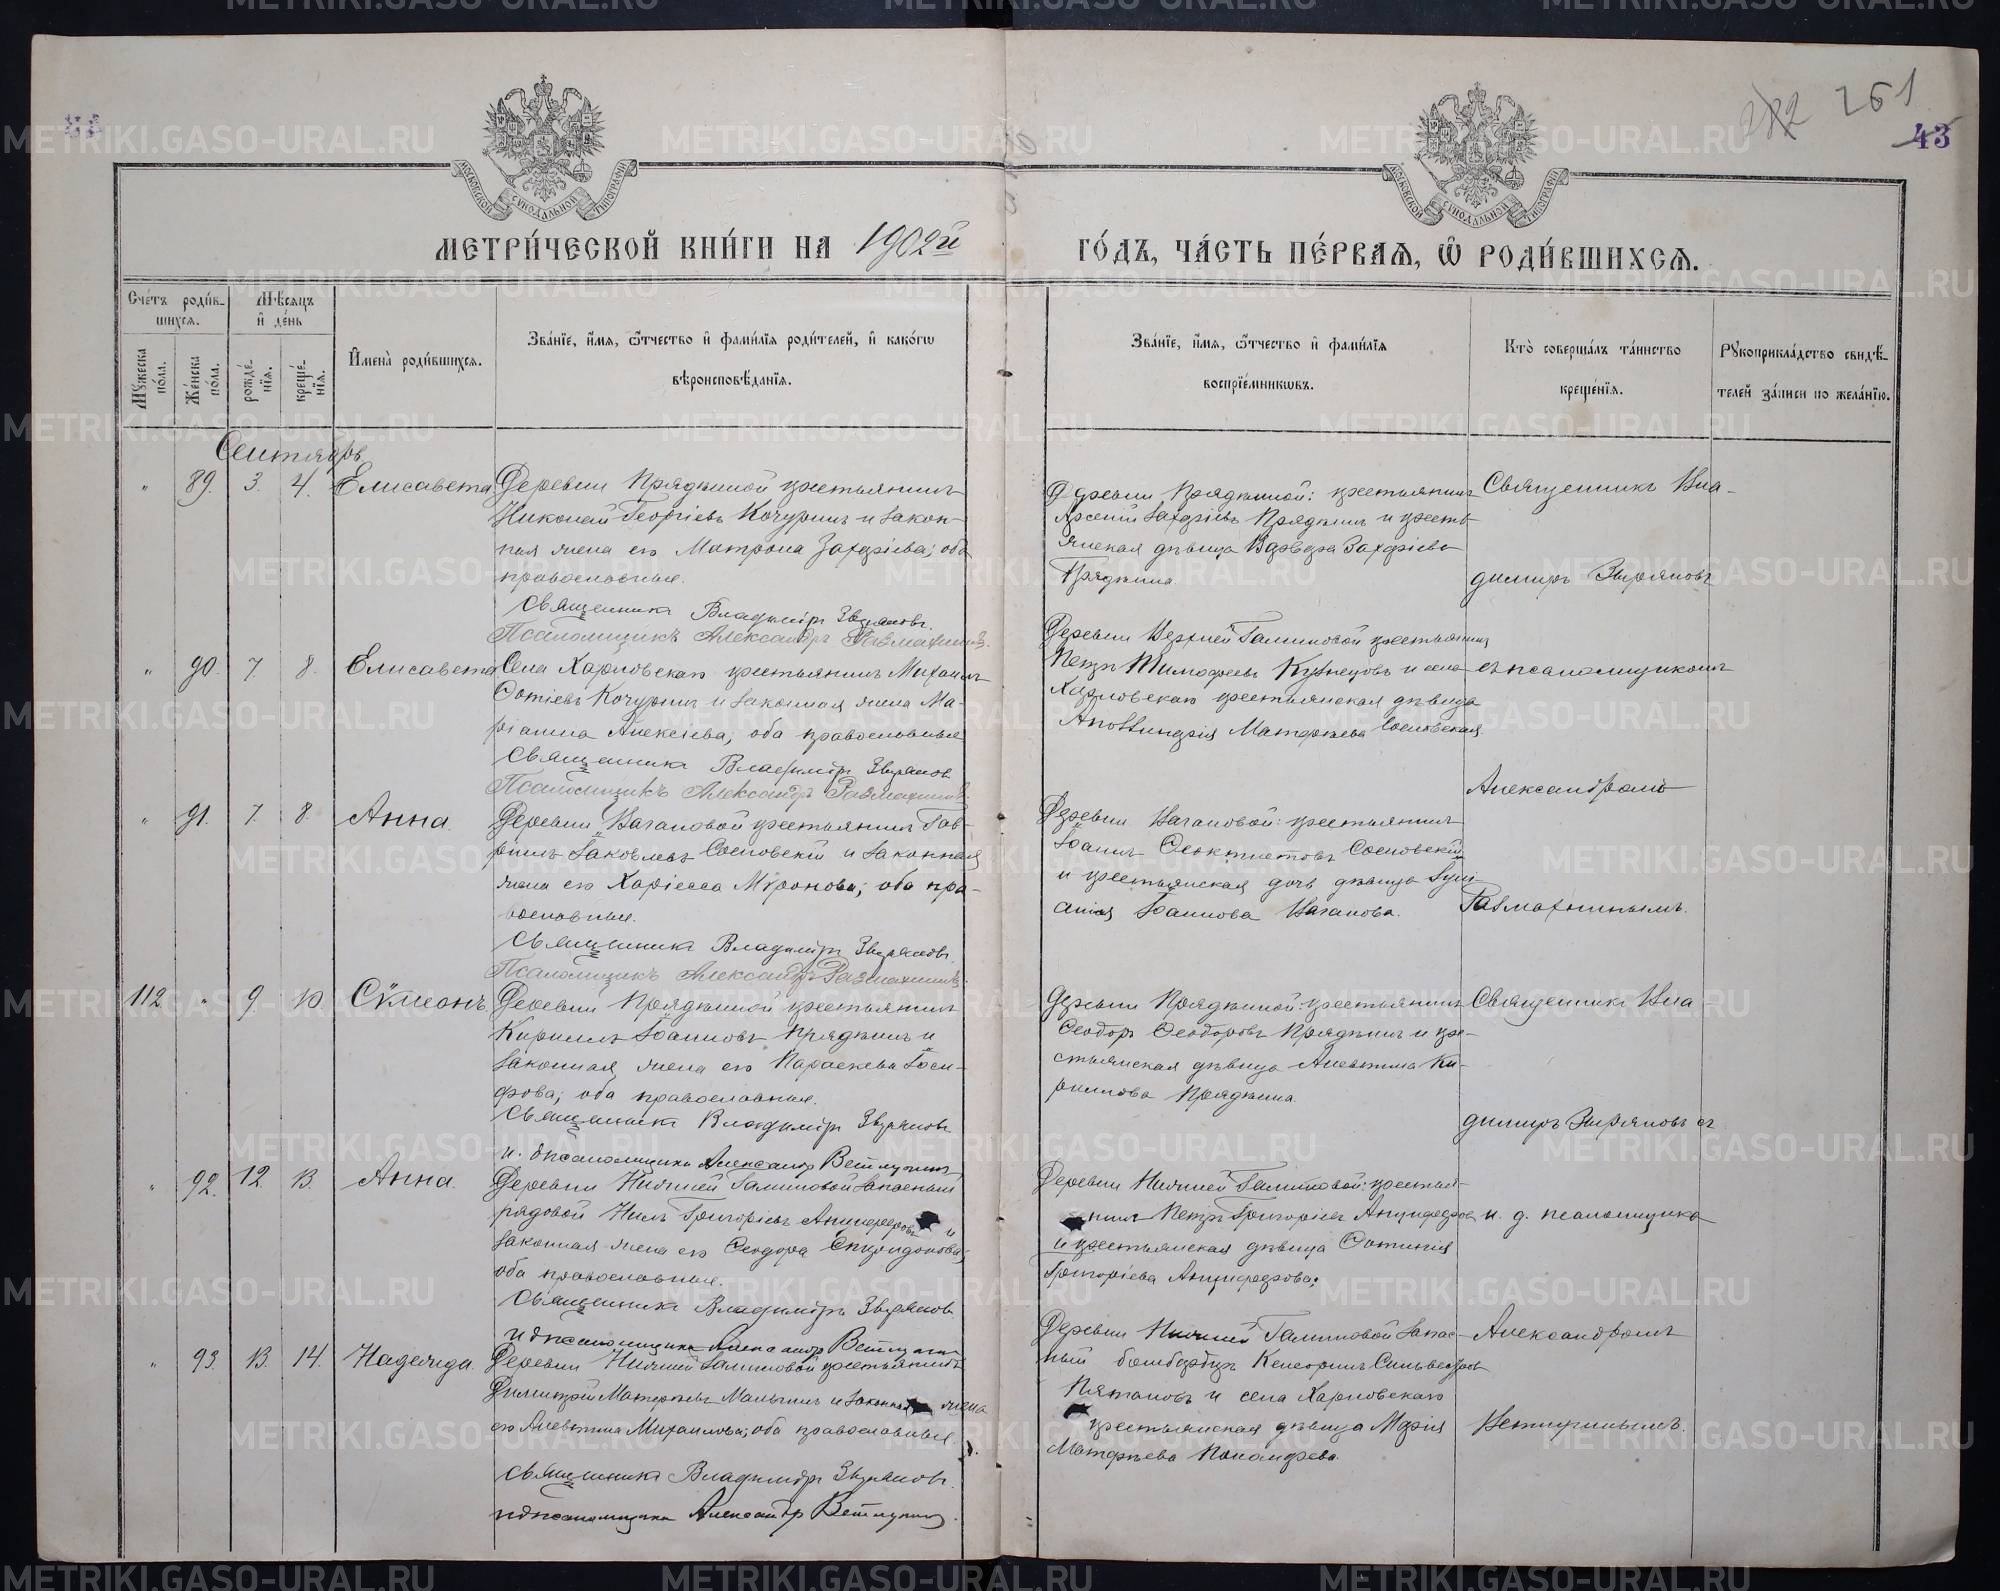 261
43
МОСКОВСКОЙ СУНОДАЛЬНОЙ ТИПОГРАФІИ
МОСКОВСКОЙ СУНОДАЛЬНОЙ ТИПОГРАФІИ
МЕТРИ́ЧЕСКОЙ КНИ́ГИ НА 1902й ГО́ДЪ, ЧА́СТЬ ПЕ́РВАѦ, Ѡ҆ РОДИ́ВШИХСѦ.
Сче́тъ роди́в-
шихсѧ.
Мѣ́сѧцъ
и҆ де́нь
Мꙋ́жеска по́ла.
Же́нска по́ла.
рожде́-
нїѧ.
креще́-
нїѧ.
И҆мена̀ роди́вшихсѧ.
Зва́нїе, и҆́мѧ, ѻ҆́тчество и҆ фами́лїѧ роди́телей, и҆ како́гѡ
вѣроисповѣ́данїѧ.
Зва́нїе, и҆́мѧ, ѻ҆́тчество и҆ фами́лїѧ
воспрїе́мникѡвъ.
Кто̀ соверша́лъ та́инство
креще́нїѧ.
Рꙋкоприкла́дство свидѣ́-
телей за́писи по жела́нїю.
Сентябрь
" 89. 3. 4. Елисавета
Деревни Прядкиной крестьянинъ
Николай Георгіевъ Кочуринъ и закон-
ная жена его Матрона Захаріева; оба
православные.
Священникъ Владиміръ Зыряновъ.
Псаломщикъ Александръ Размахнинъ.
Деревни Прядкиной: крестьянинъ
Арсеній Захаріевъ Прядкинъ и кресть-
янская дѣвица Варвара Захаріева
Прядкина
Священникъ Вла-
димиръ Зыряновъ
" 90. 7. 8. Елисавета
Села Харловскаго крестьянинъ Михаилъ
Фотіевъ Кочуринъ и законная жена Ма-
ріамна Алексіева; оба православные
Священникъ Владиміръ Зыряновъ
Псаломщикъ Александръ Размахнинъ.
Деревни Верхней Галишовой крестьянинъ
Петръ Тимофеевъ Кузнецовъ и села
Харловскаго крестьянская дѣвица
Матфіева Сосновская
съ псаломщикомъ
Александромъ
" 91. 7. 8. Анна.
Деревни Вагановой крестьянинъ Гав-
риилъ Іаковлевъ Сосновскій и законная
жена его Харіесса Миронова; оба пра-
вославные.
Священникъ Владиміръ Зыряновъ.
Псаломщикъ Александръ Размахнинъ.
Деревни Вагановой: крестьянинъ
Іоаннъ Сосновскій
и крестьянская дочь дѣвица
Іоаннова Ваганова.
Размахнинымъ.
112 " 9. 10 Сѵмеонъ
Деревни Прядкиной крестьянинъ
Кириллъ Іоанновъ Прядкинъ и
законная жена его Параскева Іоси-
фова; оба православные.
Священникъ Владиміръ Зыряновъ
и. д. псаломщика Александръ Ветлугинъ
Деревни Прядкиной: крестьянинъ
Феодоръ Феодоровъ Прядкинъ и кре-
стьянская дѣвица Алевтина Ки-
риллова Прядкина.
Священникъ Вла
димиръ Зыряновъ съ
" 92. 12. 13. Анна.
Деревни Нижней Галишовой запасный
рядовой Нилъ Григоріевъ Анциферовъ и
законная жена его Феодора Спиридонова;
оба православные.
Священникъ Владиміръ Зыряновъ.
и д псаломщика Александръ Ветлугинъ
Деревни Нижней Галишовой: крестья-
нинъ Петръ Григоріевъ Анциферовъ
и крестьянская дѣвица Фотинія
Григоріева Анциферова;
и. д. псаломщика
" 93. 13. 14. Надежда.
Деревни Нижней Галишовой крестьянинъ
Димитрій Матфіевъ Мальгинъ и законная жена
его Алевтина Михаилова; оба православные.
Священникъ Владиміръ Зыряновъ.
и д псаломщика Александръ Ветлугинъ.
Деревни Нижней Галишовой запас-
ный бомбардиръ Сильвестровъ
Пятановъ и села Харловскаго
крестьянская дѣвица Марія
Матфіева
Александромъ
Ветлугинымъ.